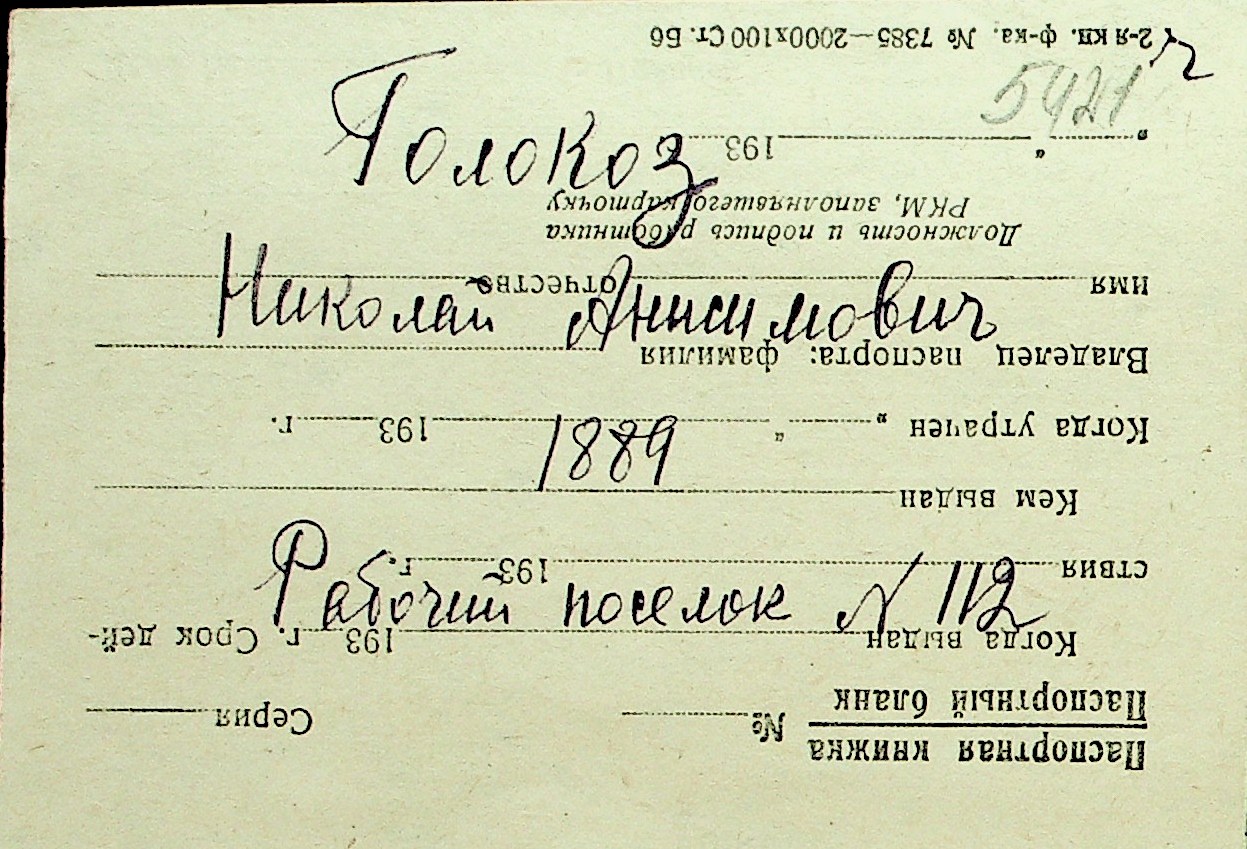 5421
Голокоз
Николай Анисимович
1889
Рабочий поселок N 112
Паспортная книжка
Паспортный бланк
№ Серия
Когда выдан 193 г. Срок дей-
ствия 193 г.
Кем выдан
Когда утрачен „ “ 193 г.
Владелец паспорта: фамилия
имя отчество
Должность и подпись работника
РКМ, заполнявшего карточку
„ “ 193
2-я кн. ф-ка. № 7385—2000х100 Ст. Б6